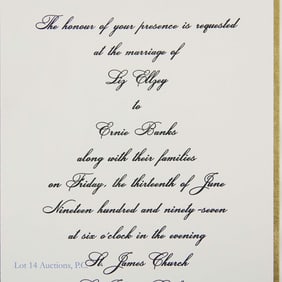 The honour of your presence is requested
at the marriage of
Liz Ellzey
to
Ernie Banks
along with their families
on Friday, the thirteenth of June
Nineteen hundred and ninety-seven
at six o'clock in the evening
St. James Church
Lot 14 Auctions, P.C.